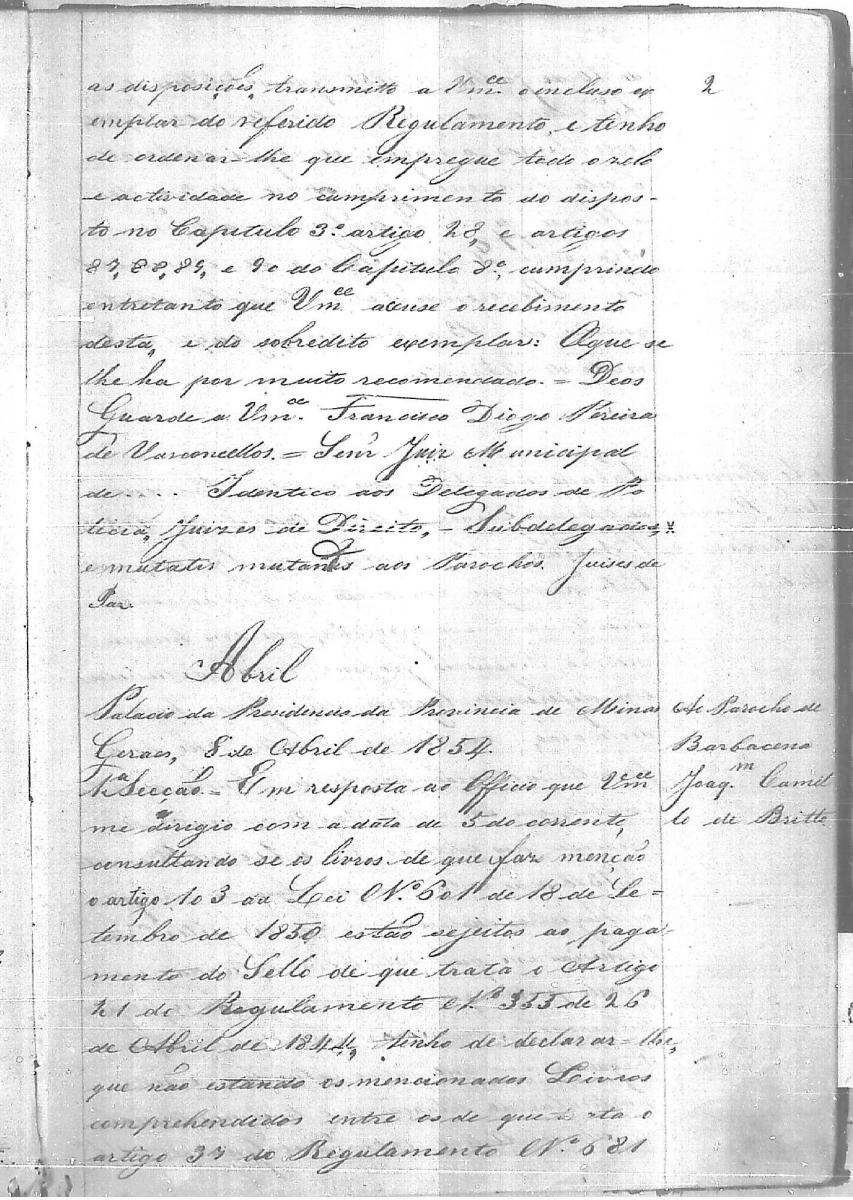 2
as disposições, transmitto a Vm.ce o incluso ex
emplar do referido Regulamento, e tenho
de ordenar-lhe que empregue todo o zelo
e actividade no cumprimento do dispos-
to no Capitulo 3.º artigo 28, e artigos
87, 88, 89, e 90 do Capitulo 8.º, cumprindo
entretanto que Vm.ce accuse o recebimento
desta, e do sobredito exemplar: O que se
lhe ha por muito recommendado. = Deos
Guarde a Vm.ce Francisco Diogo Pereira
de Vasconcellos. = Senr Juiz Municipal
de .... Identico aos Delegados de Po
licia, Juizes de Direito, - Subdelegados,
e mutatis mutandis aos Parochos. Juises de
Paz.
Abril
Palacio da Presidencia da Provincia de Minas
Geraes, 8 de Abril de 1854.
1.ª Secção. = Em resposta ao Officio que Vm.ce
me dirigio com a data de 5 do corrente,
consultando se os livros de que faz menção
o artigo 103 da Lei N.º 601 de 18 de Se=
tembro de 1850 estão sujeitos ao paga-
mento do Sello de que trata o Artigo
21 do Regulamento N.º 355 de 26
de Abril de 1844, tenho de declarar-lhe,
que não estando os mencionados Livros
comprehendidos entre os de que trata o
artigo 37 do Regulamento N.º 681
Ao Parocho de
Barbacena
Joaq.m Camil
lo de Britto